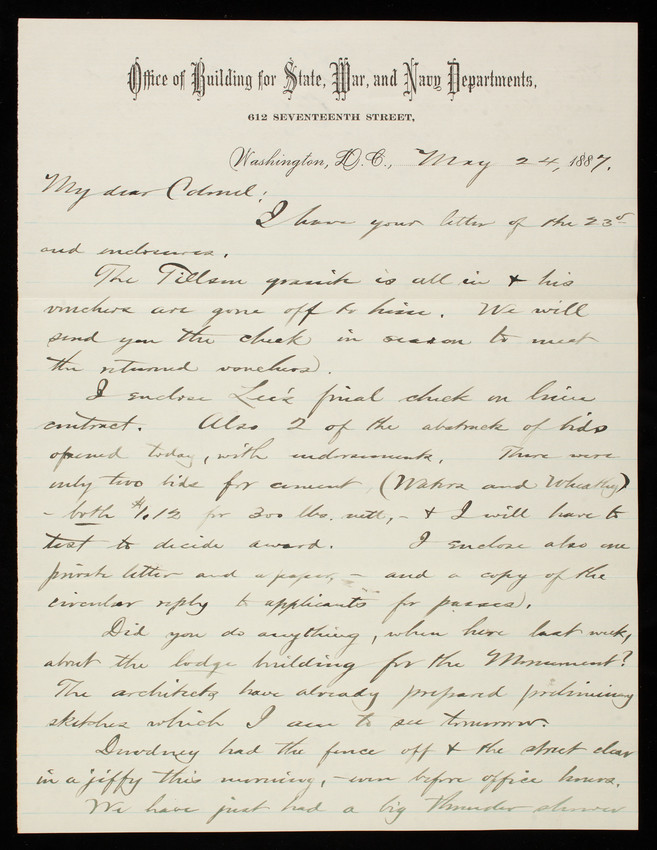 Office of Building for State, War, and Navy Departments,
612 SEVENTEENTH STREET,
Washington, D.C., May 24, 1887.
My dear Colonel:
I have your letter of the 23d
and enclosures.
The Tillson granite is all in & his
vouchers are gone off to him. We will
send you the check in season to meet
the returned vouchers.
I enclose Lee's final check on lime
contract. Also 2 of the abstracts of bids
opened today, with endorsements. There were
only two bids for cement (Waters and Wheatley)
- both $1.12 for 300 lbs. nett, - & I will have to
test to decide award. I enclose also one
private letter and a paper, - and a copy of the
circular reply to applicants for passes.
Did you do anything, when here last week,
about the lodge building for the Monument?
The architects have already prepared preliminary
sketches which I am to see tomorrow.
had the fence off & the street clear
in a jiffy this morning, - even before office hours.
We have just had a big thunder shower